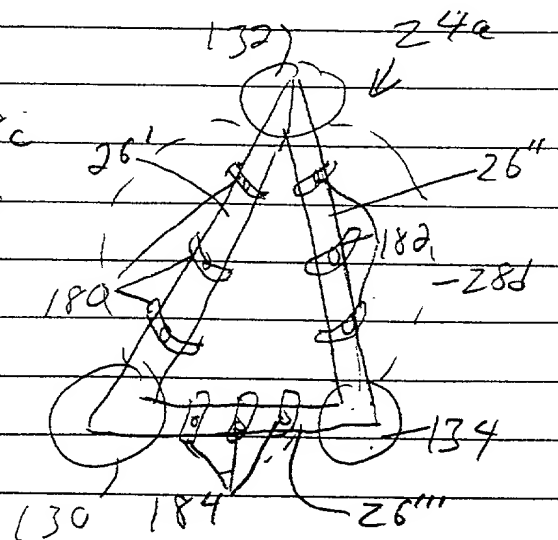 132
24a
c
26'
26"
182
180
28d
134
130
184
26'''